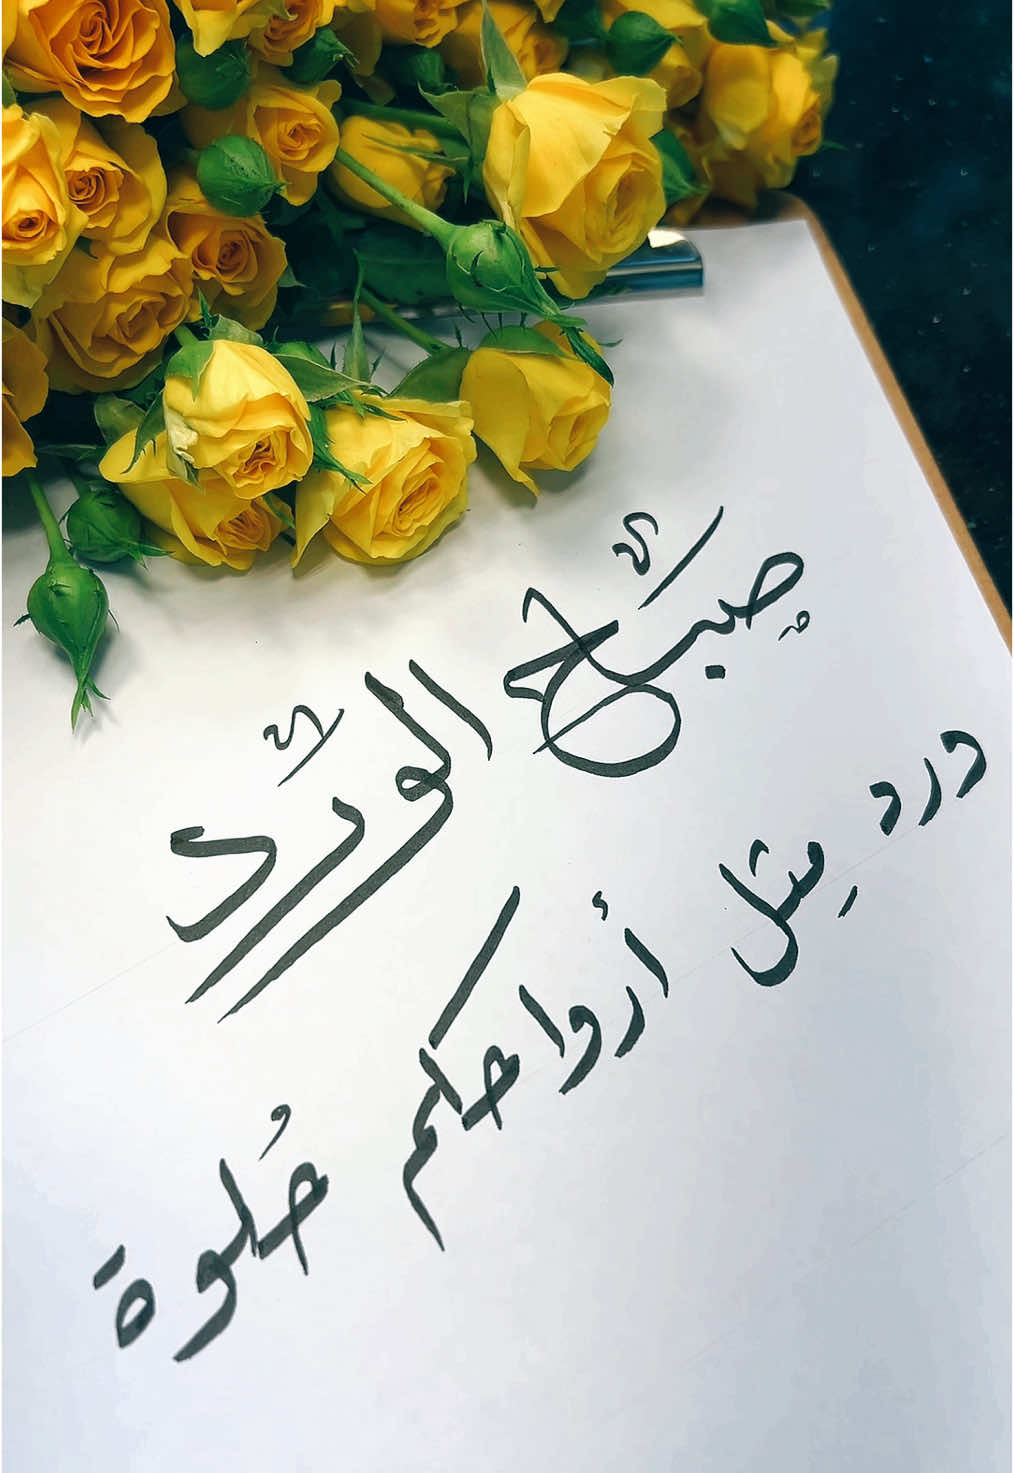 صباح الورد
ورد مِثل أرواحكم حُلوة